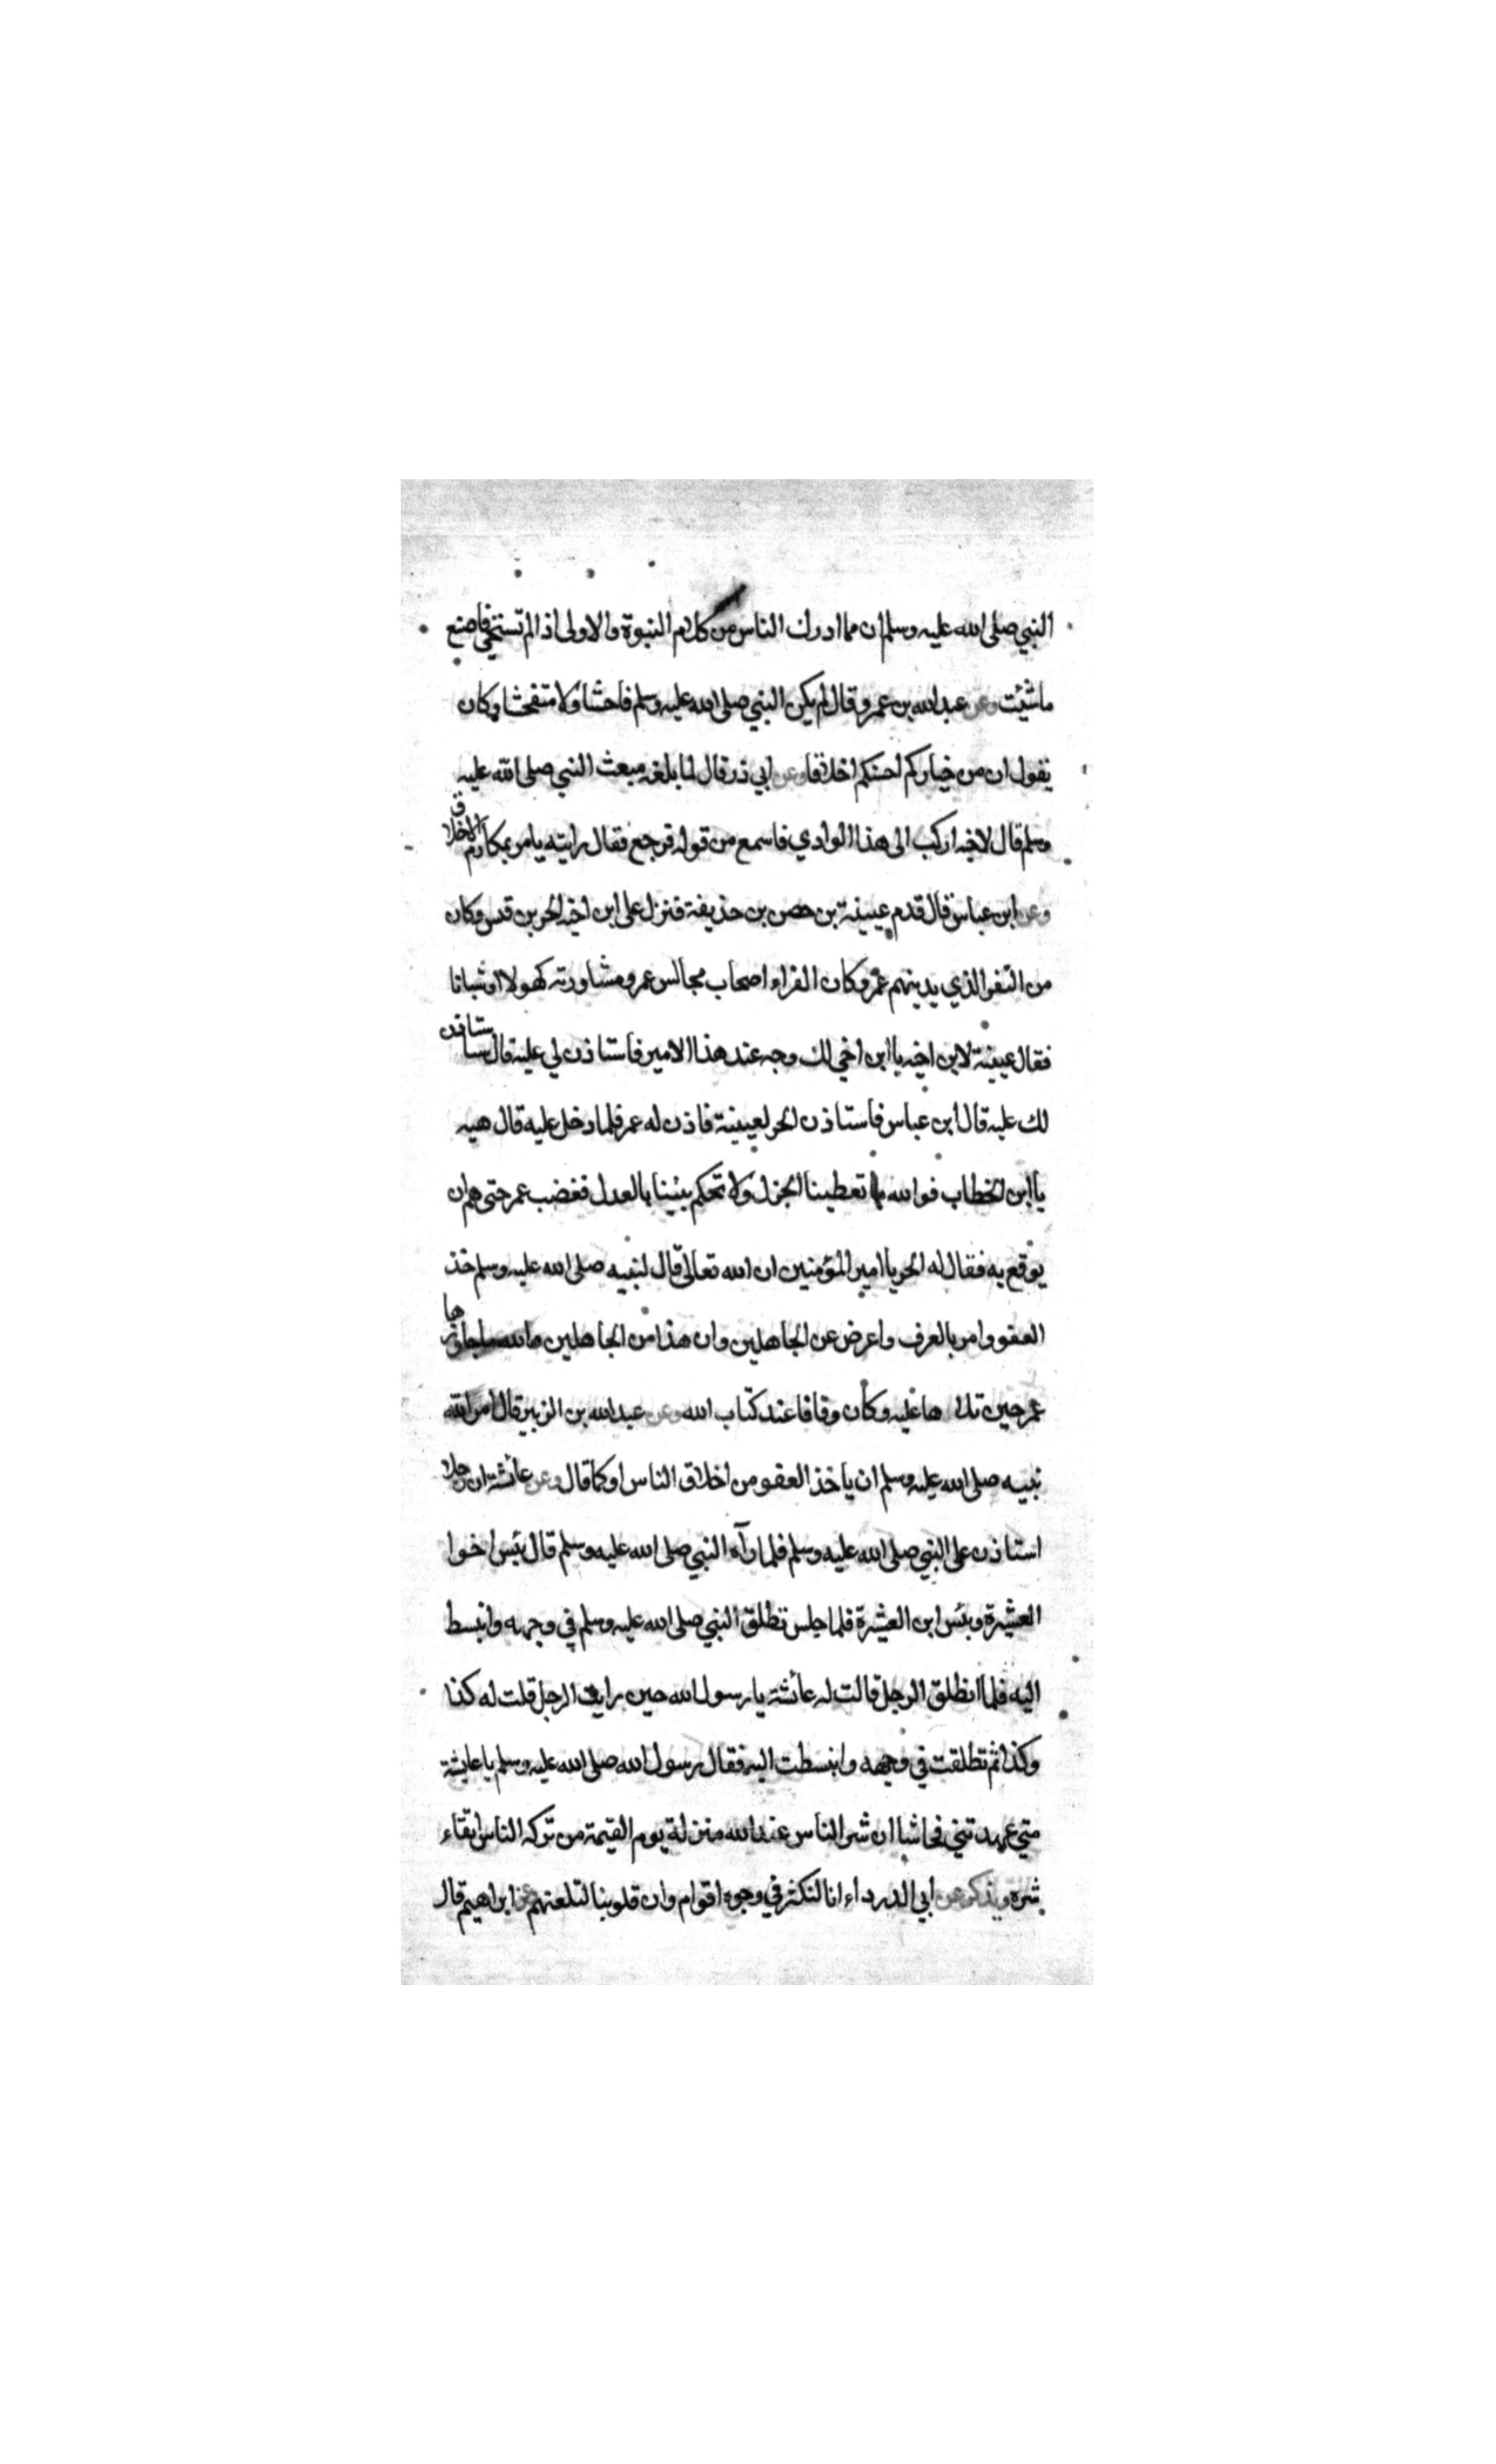 النبي صلى الله عليه وسلم ان مما ادرك الناس من كلام النبوة والاولى اذا لم تستحي فاصنع
ما شئت وعن عبد الله بن عمرو قال لم يكن النبي صلى الله عليه وسلم فاحشا ولا متفحشا وكان
يقول ان من خياركم احسنكم اخلاقا وعن ابي ذر قال لما بلغه مبعث النبي صلى الله عليه
وسلم قال لاخيه اركب الى هذا الوادي فاسمع من قوله فرجع فقال رايته يامر بمكارم الاخلاق
وعن ابن عباس قال قدم عيينة بن حصن بن حذيفة فنزل على ابن اخيه الحر بن قيس وكان
من النفر الذي يدينهم عمر وكان القراء اصحاب مجالس عمر ومشاورته كهولا او شبانا
فقال عيينة لابن اخيه يا ابن اخي لك وجه عند هذا الامير فاستاذن لي عليه قال ستاذن
لك عليه قال ابن عباس فاستاذن الحر لعيينة فاذن له عمر فلما دخل عليه قال هيه
يا ابن الخطاب فوالله ما تعطينا الجزل ولا تحكم بيننا بالعدل فغضب عمر حتى هم ان
يوقع به فقال له الحر يا امير المؤمنين ان الله تعالى قال لنبيه صلى الله عليه وسلم خذ
العفو وامر بالعرف واعرض عن الجاهلين وان هذا من الجاهلين والله ما جاوزها
عمر حين تلاها عليه وكان وقافا عند كتاب الله وعن عبد الله بن الزبير قال امر الله
نبيه صلى الله عليه وسلم ان ياخذ العفو من اخلاق الناس او كما قال وعن عائشة ان رجلا
استاذن على النبي صلى الله عليه وسلم فلما رآه النبي صلى الله عليه وسلم قال بئس اخوا
العشيرة وبئس ابن العشيرة فلما جلس تطلق النبي صلى الله عليه وسلم في وجهه وانبسط
اليه فلما انطلق الرجل قالت له عائشة يا رسول الله حين رايت الرجل قلت له كذا
وكذا ثم تطلقت في وجهه وانبسطت اليه فقال رسول الله صلى الله عليه وسلم يا عايشة
متي عهدتني فحاشا ان شر الناس عند الله منزلة يوم القيمة من تركه الناس اتقاء
شره ويذكر عن ابي الدرداء انا لنكشر في وجوه اقوام وان قلوبنا لتلعنهم وعن ابراهيم قال